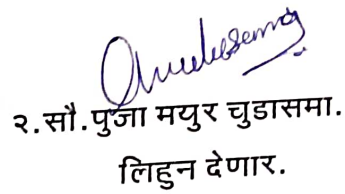 २.सौ.पुजा मयुर चुडासमा.
लिहुन देणार.